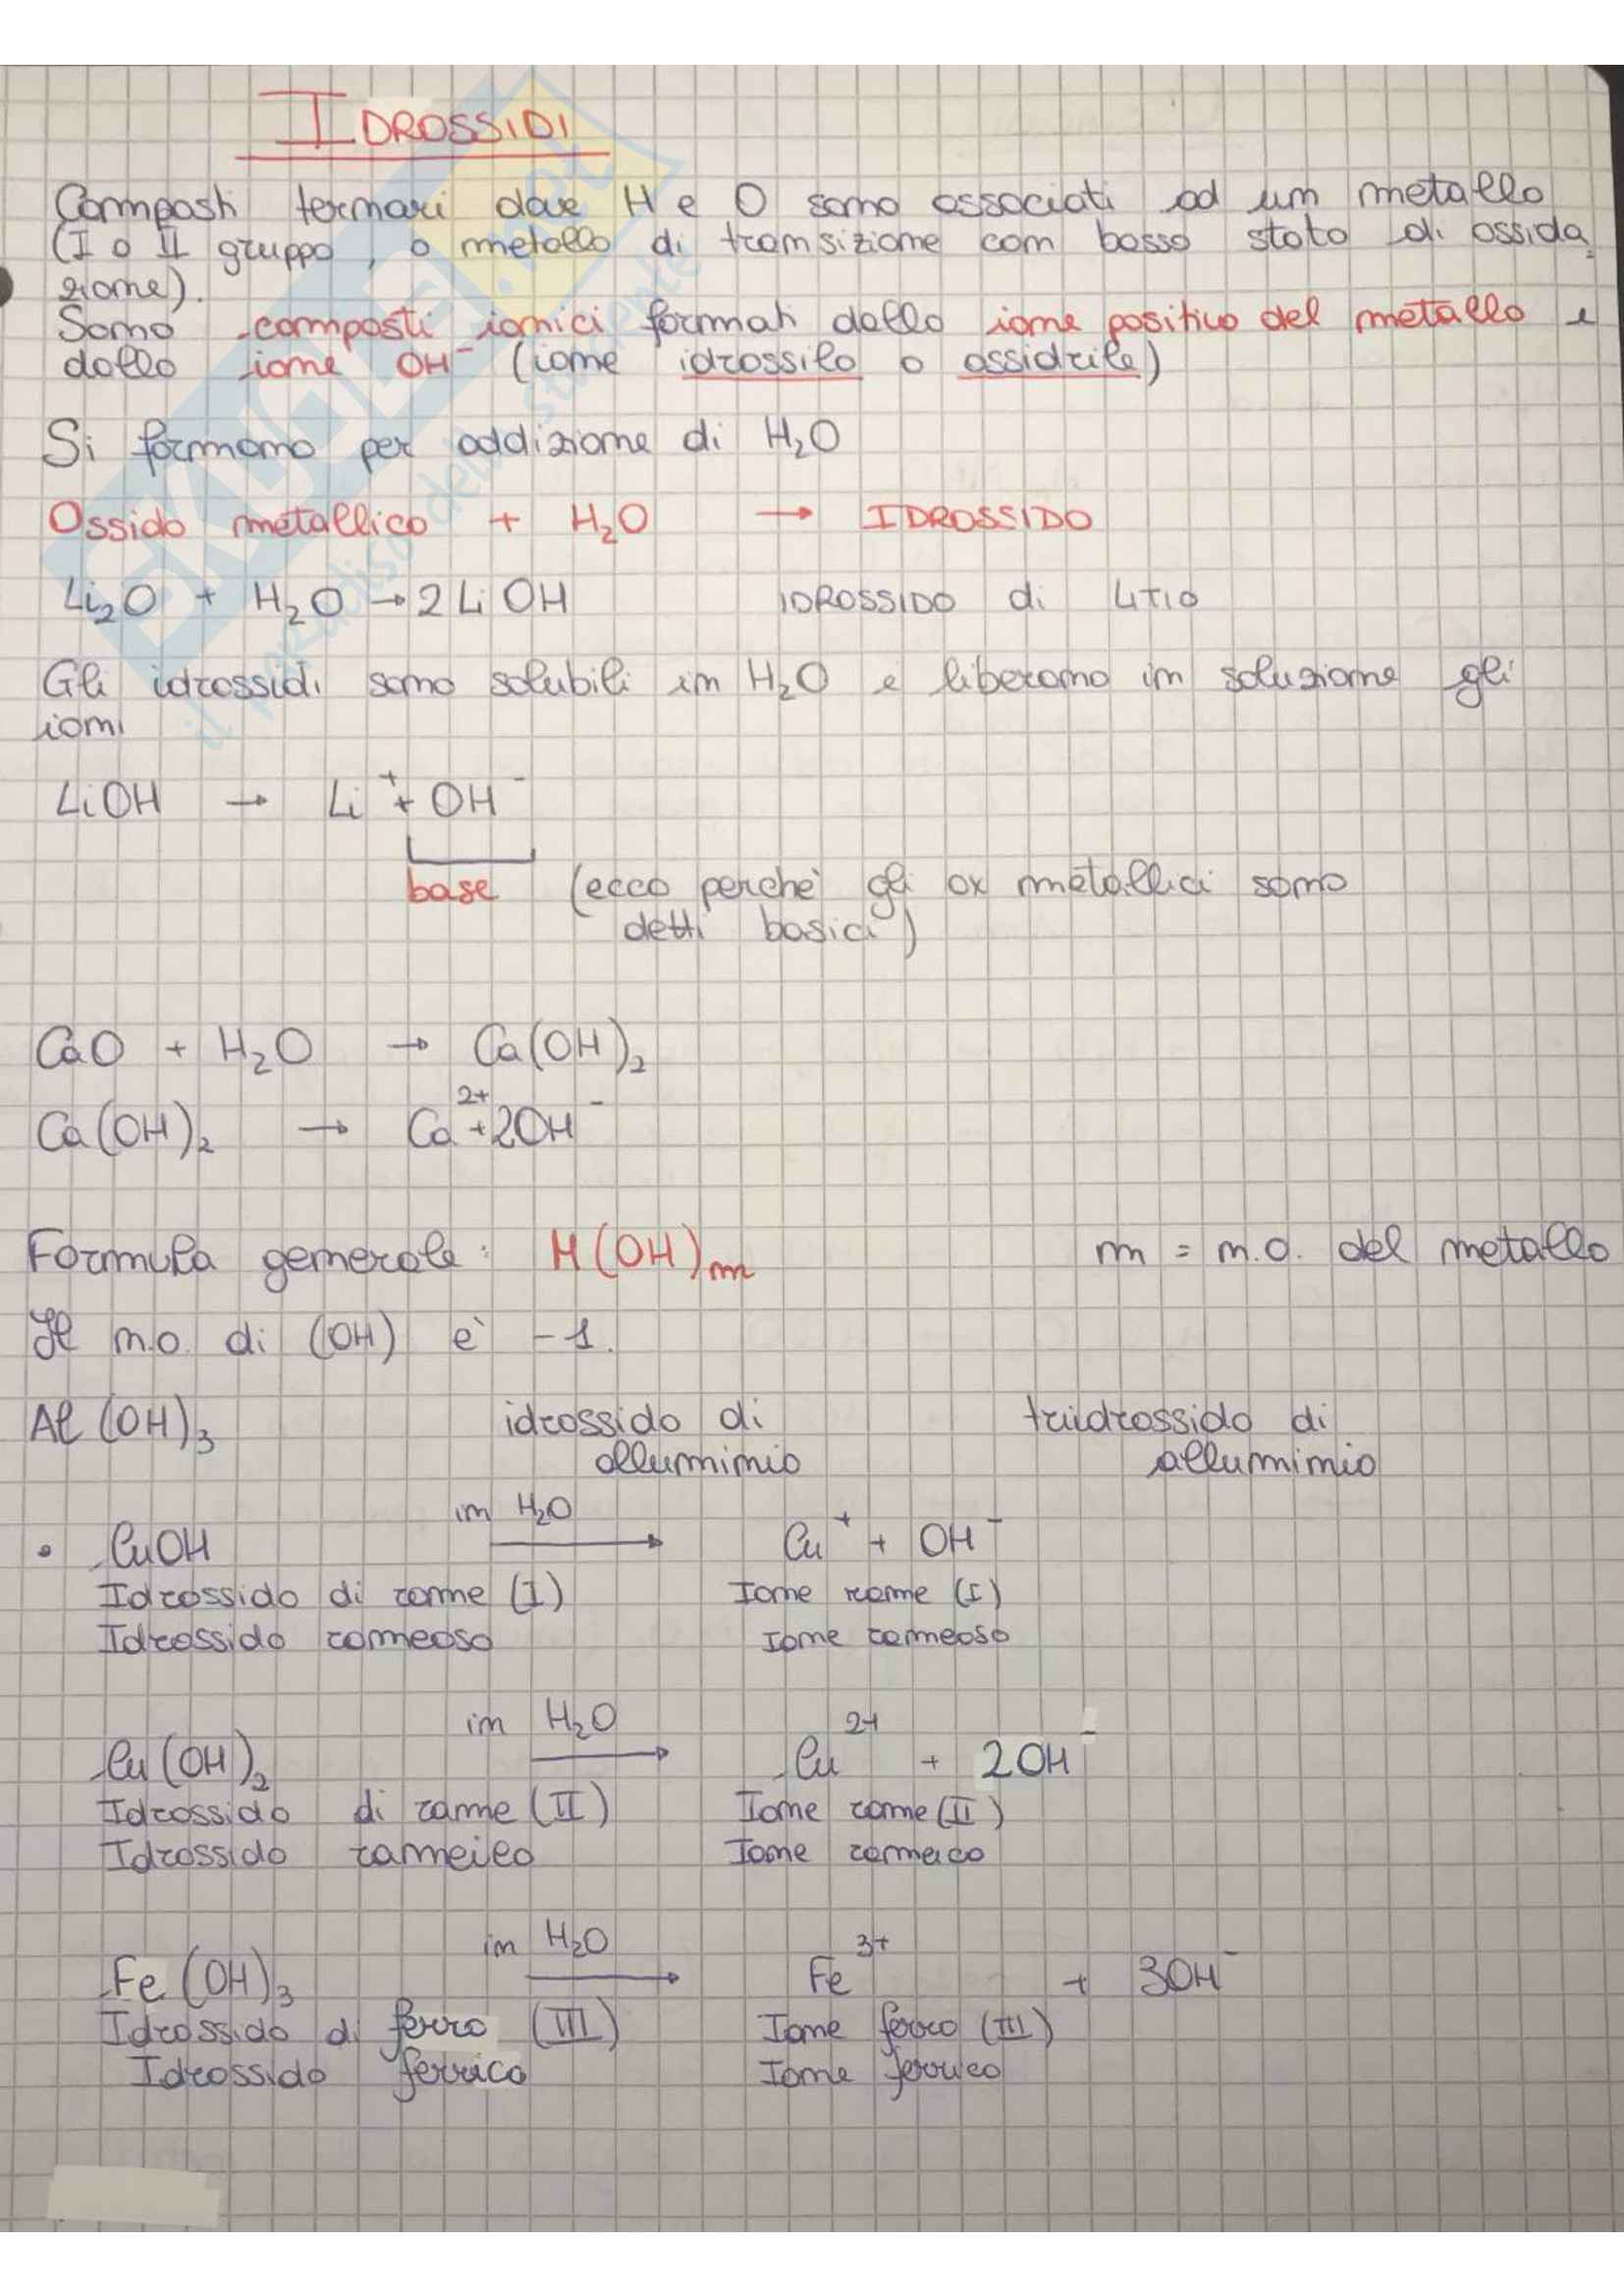 IDROSSIDI
Composti ternari dove H e O sono associati ad un metallo
(I o II gruppo, o metallo di transizione con basso stato di ossida
zione).
Sono composti ionici formati dallo ione positivo del metallo e
dallo ione OH⁻ (ione idrossilo o ossidrile)
Si formano per addizione di H₂O
Ossido metallico + H₂O → IDROSSIDO
Li₂O + H₂O → 2 LiOH IDROSSIDO di LITIO
Gli idrossidi sono solubili in H₂O e liberano in soluzione gli
ioni
LiOH → Li⁺ + OH⁻
base (ecco perchè gli ox metallici sono
detti basici)
CaO + H₂O → Ca(OH)₂
Ca(OH)₂ → Ca²⁺ + 2OH⁻
Formula generale: M(OH)ₙ n = n.o. del metallo
Il n.o. di (OH) è -1.
Al(OH)₃ idrossido di triidrossido di
alluminio alluminio
in H₂O
• CuOH → Cu⁺ + OH⁻
Idrossido di rame (I) Ione rame (I)
Idrossido rameoso Ione rameoso
in H₂O
Cu(OH)₂ → Cu²⁺ + 2OH⁻
Idrossido di rame (II) Ione rame (II)
Idrossido rameico Ione rameico
in H₂O
Fe(OH)₃ → Fe³⁺ + 3OH⁻
Idrossido di ferro (III) Ione ferro (III)
Idrossido ferrico Ione ferrico